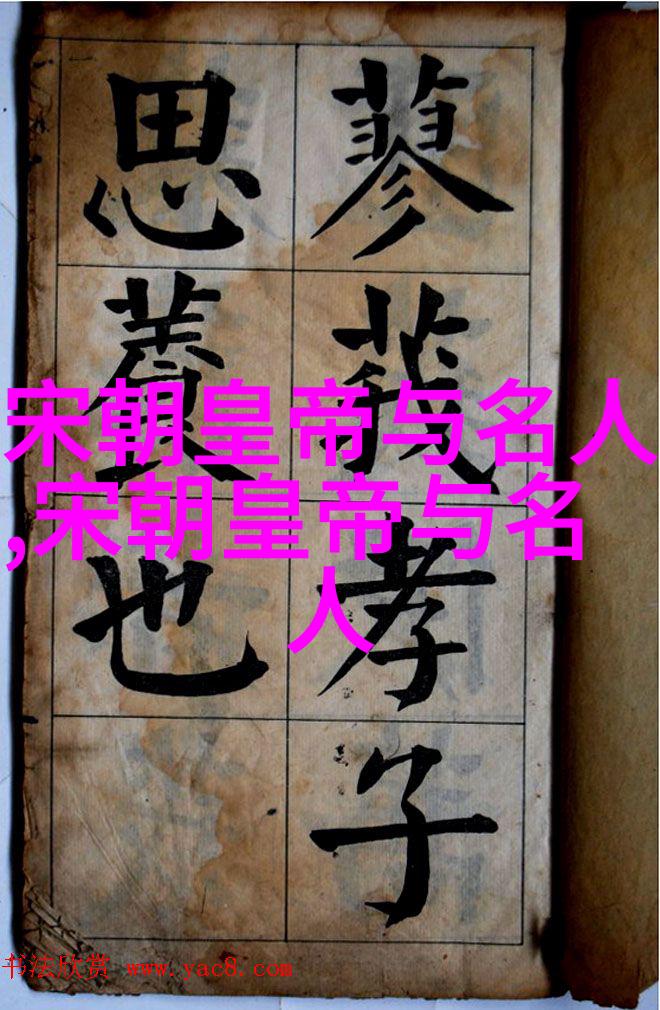 蓼莪孝子
思養也
宋朝皇帝与名人
,宋朝皇帝与名
人
书法欣赏 www.yac8.com